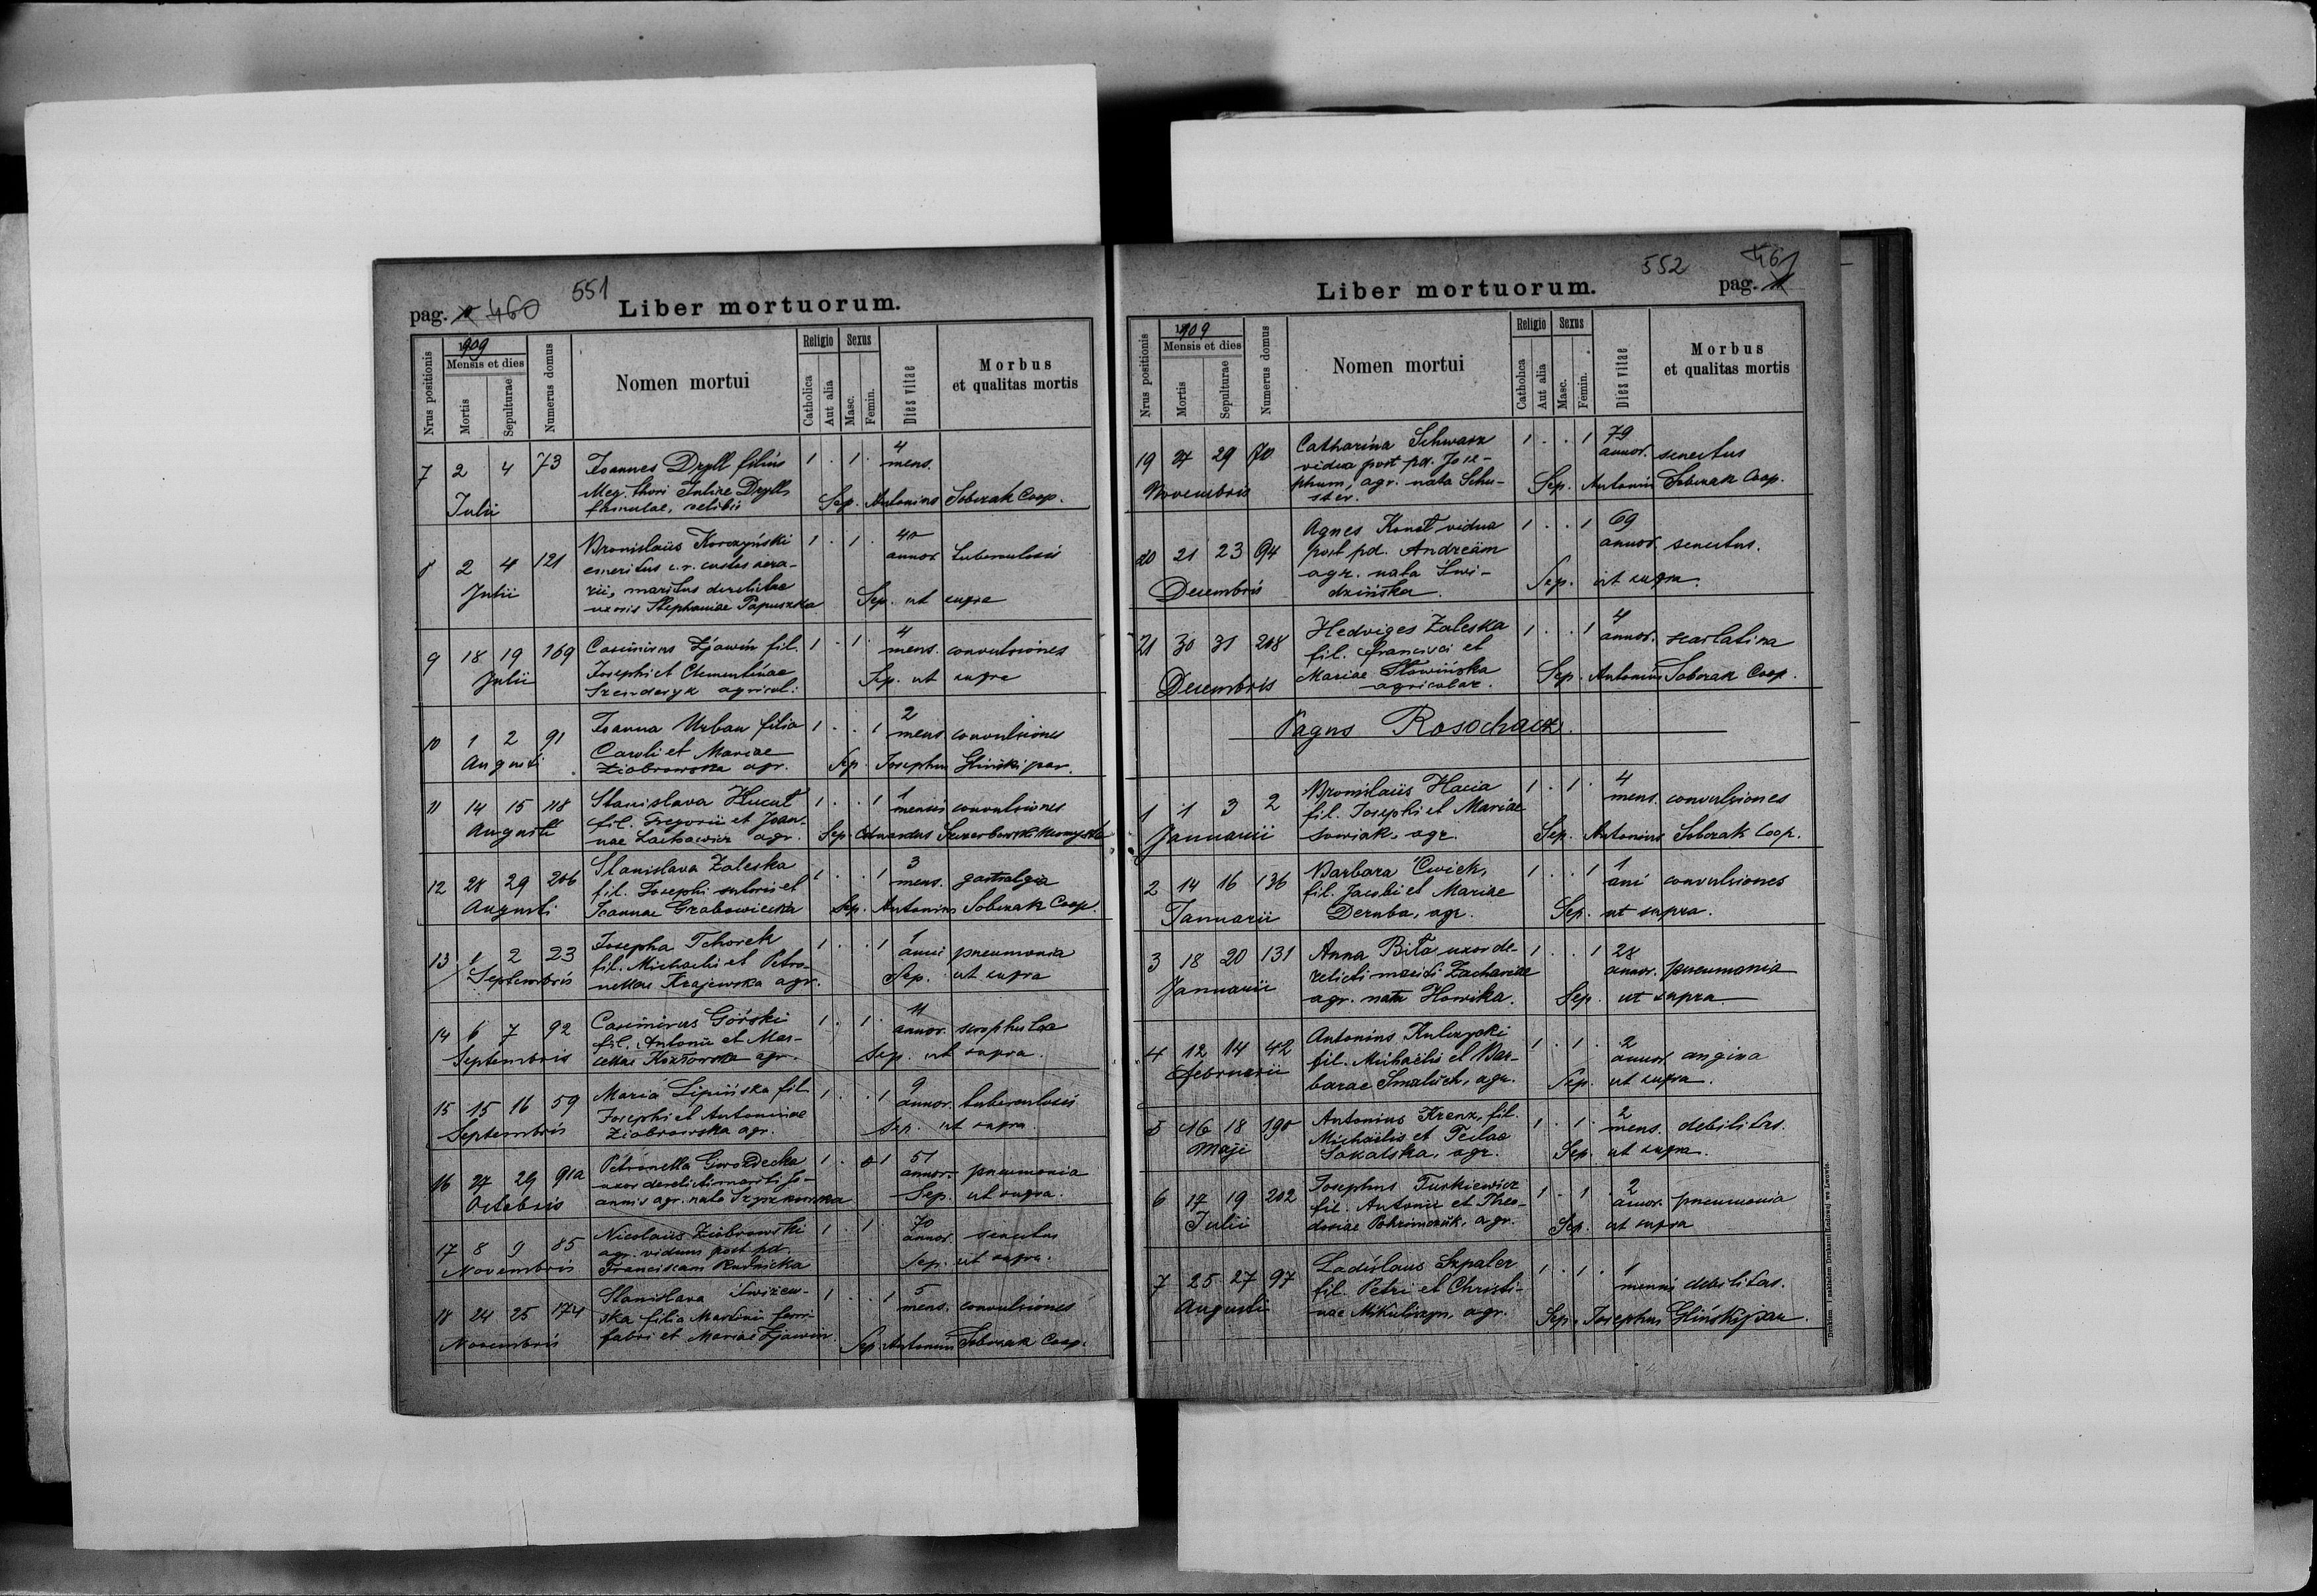 551
pag. 460 Liber mortuorum.
Nrus positionis
1909
Mensis et dies
Mortis
Sepulturae
Numerus domus
Nomen mortui
Religio
Catholica
Aut alia
Sexus
Masc.
Femin.
Dies vitae
Morbus
et qualitas mortis
7 2 4 73 Joannes Dryll filius 1 . 1 . 4
mens.
Meg. thori Juliae Dryll
Julii famulae, celibis Sep. Antonius Sobczak Coop.
8 2 4 121 Bronislaus Korczyński 1 . 1 . 40
emeritus c.r. custos aera- annor. tuberculosis
Julii rii, maritus derelictae
uxoris Stephaniae Papuszka Sep. ut supra
9 18 19 169 Casimirus Zjawin fil. 1 . 1 . 4
mens. convulsiones
Julii Josephi et Clementinae
Szenderyk agricol: Sep. ut supra
10 1 2 91 Joanna Urban filia 1 . . 1 2
mens. convulsiones
Augusti Caroli et Mariae
Ziobrowska agr. Sep. Josephus Gliński par.
11 14 15 118 Stanislava Hucul 1 . . 1 1
mensis convulsiones
Augusti fil. Gregorii et Joan-
nae Lachowicz agr. Sep. Eduardus
12 28 29 206 Stanislava Zaleska 1 . . 1 3
mens. gastralgia
fil. Josephi sutoris et
Augusti Joannae Grabowiecka Sep. Antonius Sobczak Coop.
13 1 2 23 Josepha Tchorek 1 . . 1 1
anni pneumonia
Septembris fil. Michaelis et Petro-
nellae Krajewska agr. Sep. ut supra
14 6 7 92 Casimirus Górski 1 . 1 . 11
annor. scrophuloza
Septembris fil. Antonii et Mar-
cellae Kozłowska agr. Sep. ut supra.
15 15 16 59 Maria Lipińska fil. 1 . . 1 9
annor. tuberculosis
Septembris Josephi et Antoninae
Ziobrowska agr. Sep. ut supra
16 27 29 91a Petronella Gwozdecka 1 . 1 51
annor. pneumonia
uxor derelicti mariti Jo-
Octobris annis agr. nata Szyszkowska Sep. ut supra.
17 8 9 85 Nicolaus Ziobrowski 1 . 1 . 70
annor. senectus
agr. viduus post pd.
Novembris Franciscam Rudnicka Sep. ut supra.
18 24 25 174 Stanislava 1 . . 1 5
mens. convulsiones
ska filia Martini ferri-
Novembris fabri et Mariae Zjawin. Sep. Antonius Sobczak Coop.
552 461
Liber mortuorum. pag.
Nrus positionis
1909
Mensis et dies
Mortis
Sepulturae
Numerus domus
Nomen mortui
Religio
Catholica
Aut alia
Sexus
Masc.
Femin.
Dies vitae
Morbus
et qualitas mortis
19 27 29 70 Catharina Schwarz 1 . . 1 79
annor. senectus
vidua post pd. Jose-
Novembris phum, agr. nata Schu- Sep. Antonius Sobczak Coop.
ster.
20 21 23 94 Agnes Konat vidua 1 . . 1 69
annor. senectus.
post pd. Andream
agr. nata Świ-
Decembris dzińska. Sep. ut supra.
21 30 31 208 Hedviges Zaleska 1 . . 1 4
annor. scarlatina
fil. Francisci et
Mariae Słowińska
Decembris agricolar. Sep. Antonius Sobczak Coop.
Pagus Rosochacz.
1 1 3 2 Bronislaus Hacia 1 . 1 . 4
mens. convulsiones
fil. Josephi et Mariae
Januarii agr. Sep. Antonius Sobczak Coop.
2 14 16 136 Barbara Ćwiek, 1 . . 1 1
ani convulsiones
fil. Jacobi et Mariae
Januarii Deruba, agr. Sep. ut supra.
3 18 20 131 Anna Bita uxor de- 1 . . 1 28
annor. pneumonia
relicti mariti Zachariae
Januarii agr. nata Howika. Sep. ut supra.
4 12 14 42 Antonius Kulczycki 1 . 1 . 2
annor. angina
Februarii fil. Michaelis et Bar-
barae Smaluch, agr. Sep. ut supra.
5 16 18 190 Antonius Krenz, fil. 1 . 1 . 2
mens. debilitas.
Maji Michaelis et Teclae
Sakalska, agr. Sep. ut supra.
6 17 19 202 Josephus Turkiewicz 1 . 1 . 2
annor. pneumonia
Julii fil. Antonii et Theo-
dosiae agr. Sep. ut supra
7 25 27 97 Ladislaus Szpaler 1 . 1 . 1
mensis debilitas.
Augusti fil. Petri et Christi-
nae Mikuliszyn, agr. Sep. Josephus Gliński par.
Drukiem i nakładem Drukarni Ludowej we Lwowie.